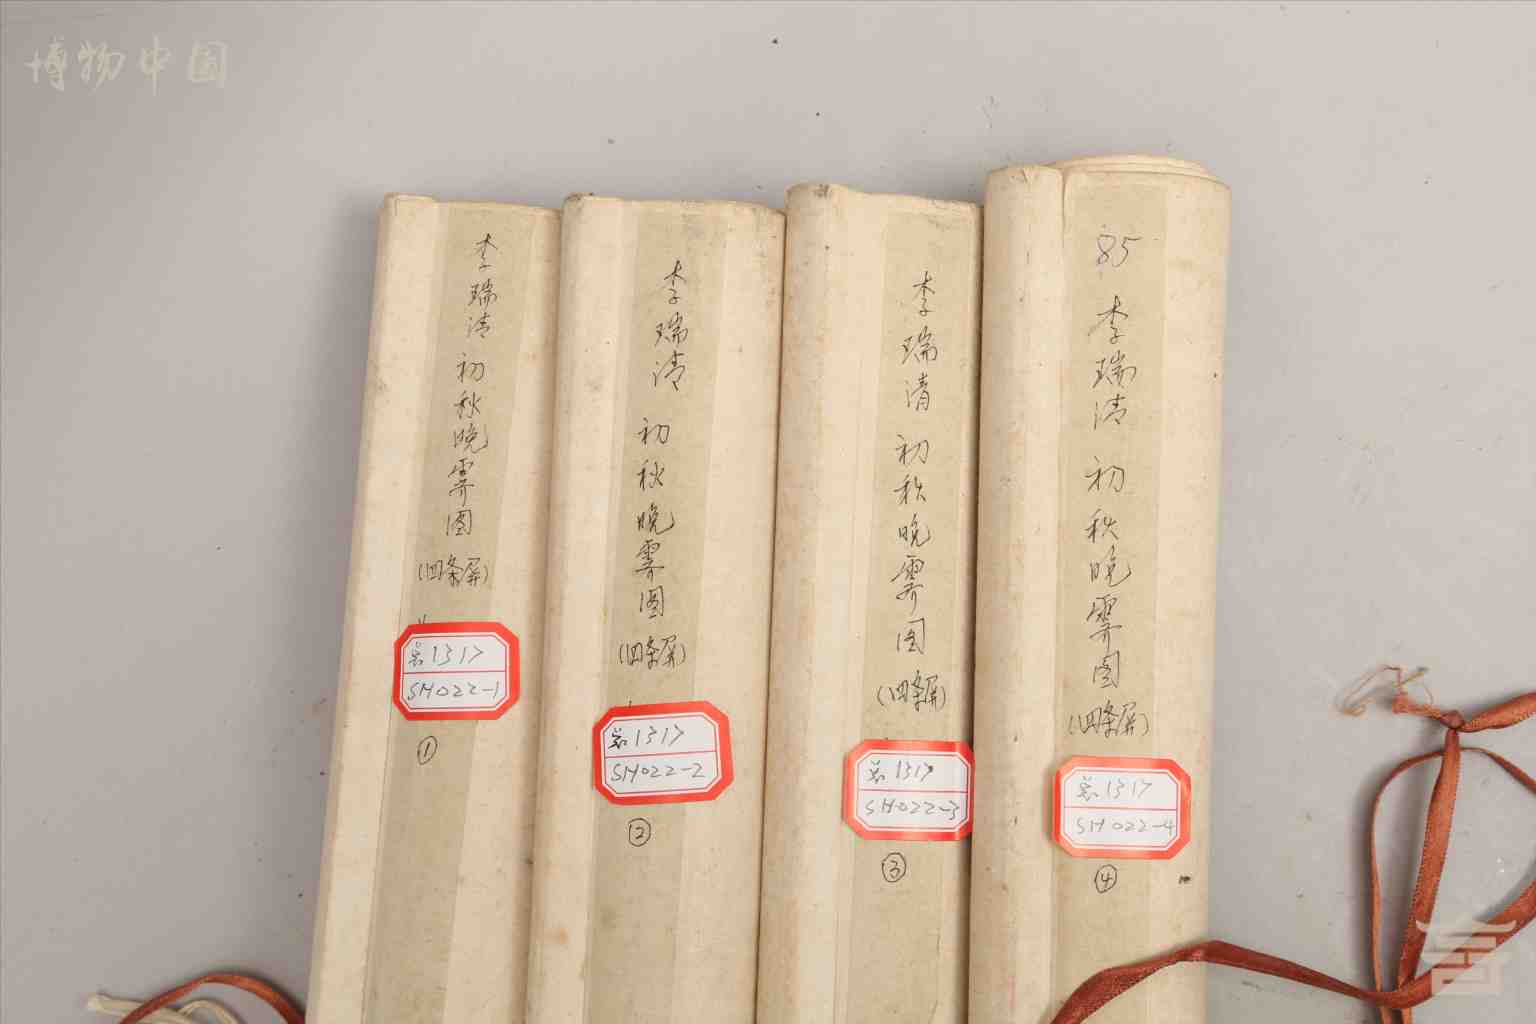 博物中国
李瑞清 初秋晚霁图
(四条屏)
总1317
SH022-1
①
李瑞清 初秋晚霁图
(四条屏)
总1317
SH022-2
②
李瑞清 初秋晚霁图
(四条屏)
总1317
SH022-3
③
85
李瑞清 初秋晚霁图
(四条屏)
总1317
SH022-4
④